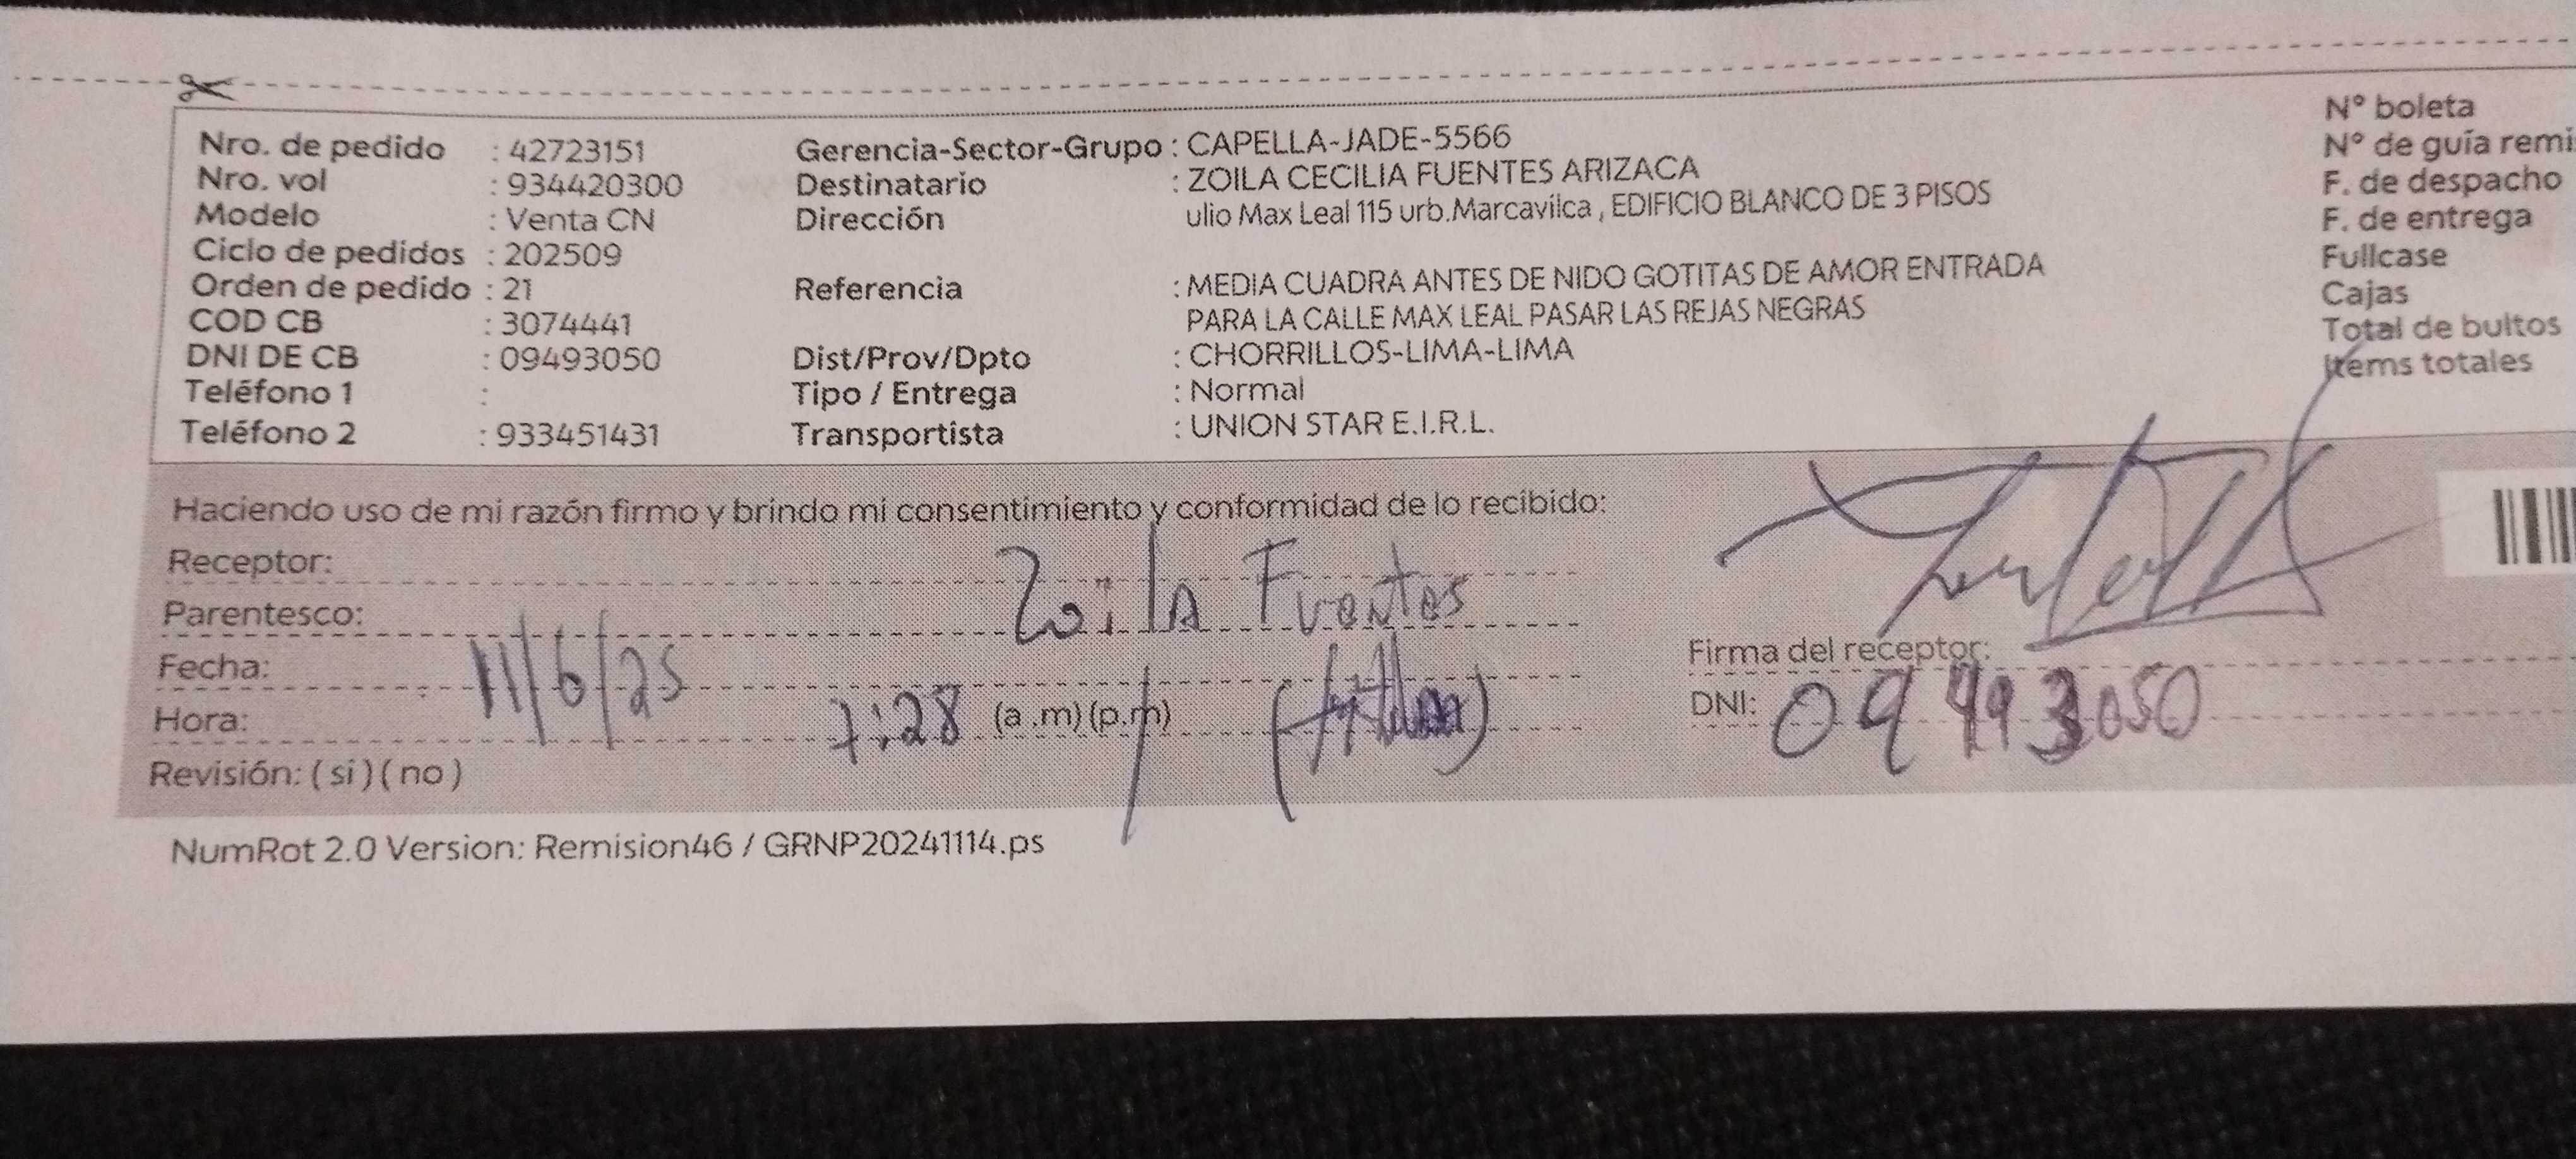 Nro. de pedido : 42723151 Gerencia-Sector-Grupo : CAPELLA-JADE-5566 N° boleta
Nro. vol : 934420300 Destinatario : ZOILA CECILIA FUENTES ARIZACA N° de guía remi
Modelo : Venta CN Dirección ulio Max Leal 115 urb.Marcavilca , EDIFICIO BLANCO DE 3 PISOS F. de despacho
Ciclo de pedidos : 202509 F. de entrega
Orden de pedido : 21 Referencia : MEDIA CUADRA ANTES DE NIDO GOTITAS DE AMOR ENTRADA Fullcase
COD CB : 3074441 PARA LA CALLE MAX LEAL PASAR LAS REJAS NEGRAS Cajas
DNI DE CB : 09493050 Dist/Prov/Dpto : CHORRILLOS-LIMA-LIMA Total de bultos
Teléfono 1 : Tipo / Entrega : Normal Items totales
Teléfono 2 : 933451431 Transportista : UNION STAR E.I.R.L.
Haciendo uso de mi razón firmo y brindo mi consentimiento y conformidad de lo recibido:
Receptor: Zoila Fuentes
Parentesco:
Fecha: 11/6/25 Firma del receptor:
Hora: 7:28 (a .m) (p.m) DNI: 09493050
Revisión: ( si ) ( no )
NumRot 2.0 Version: Remision46 / GRNP20241114.ps